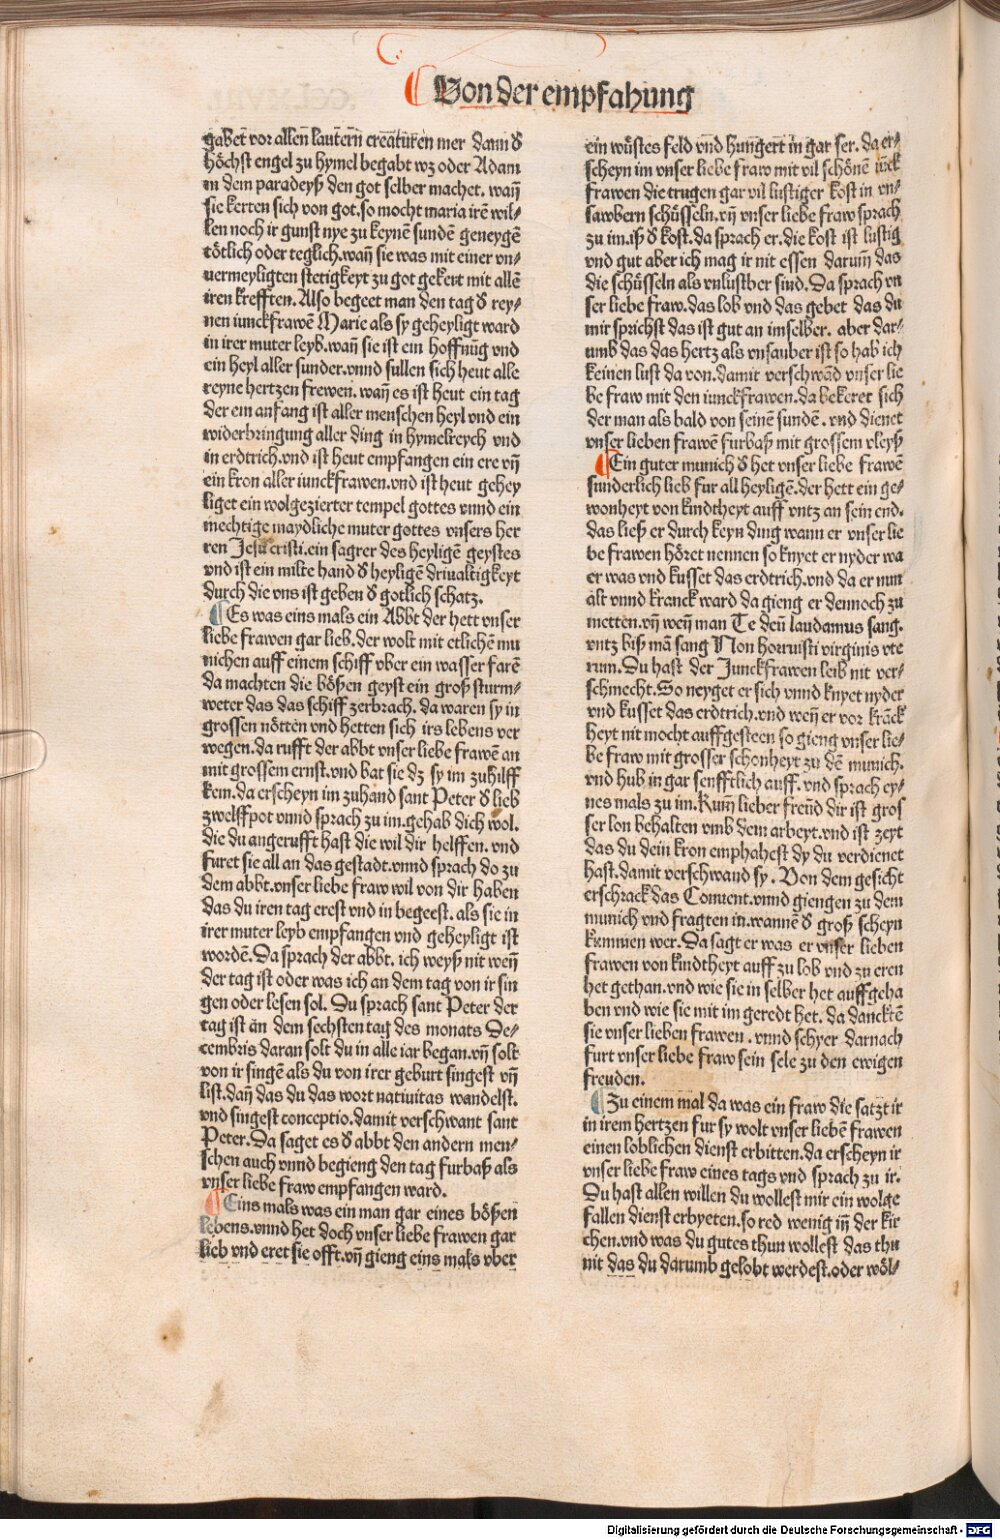 Von der empfahung
gabet vor allen lautern creaturen mer dann d̕
höchst engel zu hymel begabt wz oder Adam
in dem paradeyß den got selber machet. wañ
sie kerten sich von got. so mocht maria irē wil⸗
len noch ir gunst nye zu keynē sundē geneygē
tötlich oder teglich. wañ sie was mit einer vn⸗
uermeyligten stetigkeyt zu got gekert mit allē
iren krefften. Also begeet man den tag d̕ rey⸗
nen iunckfrawē Marie als sy geheyligt ward
in irer muter leyb. wañ sie ist ein hoffnūg vnd
ein heyl aller sunder. vnnd sullen sich heut alle
reyne hertzen frewen. wañ es ist heut ein tag
der ein anfang ist aller menschen heyl vnd ein
widerbringung aller ding in hymelreych vnd
in erdtrich. vnd ist heut empfangen ein ere vñ
ein kron aller iunckfrawen. vnd ist heut gehey
liget ein wolgezierter tempel gottes vnnd ein
mechtige maydliche muter gottes vnsers her
ren Jesu cristi. ein sagrer des heyligē geystes
vnd ist ein milte hand d̕ heyligē driualtigkeyt
durch die vns ist geben d̕ gotlich schatz.
Es was eins mals ein Abbt der hett vnser
liebe frawen gar lieb. der wolt mit etlichē mu
nichen auff einem schiff vber ein wasser farē
da machten die bößen geyst ein groß sturm⸗
weter das das schiff zerbrach. da waren sy in
grossen nötten vnd hetten sich irs lebens ver
wegen. da rufft der abbt vnser liebe frawē an
mit grossem ernst. vnd bat sie dz sy im zuhilff
kem. da erscheyn im zuhand sant Peter d̕ lieb
zwelffpot vnnd sprach zu im. gehab dich wol.
die du angerufft hast die wil dir helffen. vnd
furet sie all an das gestadt. vnnd sprach do zu
dem abbt. vnser liebe fraw wil von dir haben
das du iren tag erest vnd in begeest. als sie in
irer muter leyb empfangen vnd geheyligt ist
wordē. Da sprach der abbt. ich weyß nit weñ
der tag ist oder was ich an dem tag von ir sin
gen oder lesen sol. Du sprach sant Peter der
tag ist an dem sechsten tag des monats De⸗
cembris daran solt du in alle iar began. vñ solt
von ir singē als du von irer geburt singest vñ
list. dañ das du das wort natiuitas wandelst.
vnd singest conceptio. damit verschwant sant
Peter. Da saget es d̕ abbt den andern men⸗
schen auch vnnd begieng den tag furbaß als
vnser liebe fraw empfangen ward.
Eins mals was ein man gar eines bößen
lebens. vnnd het doch vnser liebe frawen gar
lieb vnd eret sie offt. vñ gieng eins mals vber
ein wüstes feld vnd hungert in gar ser. da er⸗
scheyn im vnser liebe fraw mit vil schönē iūck
frawen die trugen gar vil lustiger kost in vn⸗
sawbern schüsseln. vñ vnser liebe fraw sprach
zu im. iß d̕ kost. da sprach er. die kost ist lustig
vnd gut aber ich mag ir nit essen darum̄ das
die schüsseln als vnlustber sind. Da sprach vn
ser liebe fraw. das lob vnd das gebet das du
mir sprichst das ist gut an imselber. aber dar⸗
umb das das hertz als vnsauber ist so hab ich
keinen lust da von. damit verschwād vnser lie
be fraw mit den iunckfrawen. da bekeret sich
der man als bald von seinē sundē. vnd dienet
vnser lieben frawē furbaß mit grossem vleyß
Ein guter munich d̕ het vnser liebe frawē
sunderlich lieb fur all heyligē. der hett ein ge⸗
wonheyt von kindtheyt auff vntz an sein end.
das ließ er durch keyn ding wann er vnser lie
be frawen höret nennen so knyet er nyder wa
er was vnd kusset das erdtrich. vnd da er nun
alt vnnd kranck ward da gieng er dennoch zu
metten. vñ weñ man Te deū laudamus sang.
vntz biß mā sang Non horruisti virginis vte
rum. Du hast der Junckfrawen leib nit ver⸗
schmecht. So neyget er sich vnnd knyet nyder
vnd kusset das erdtrich. vnd weñ er vor krāck
heyt nit mocht auffgesteen so gieng vnser lie⸗
be fraw mit grosser schonheyt zu dē munich.
vnd hub in gar senfftlich auff. vnd sprach ey⸗
nes mals zu im. Kum̄ lieber freūd dir ist gros
ser lon behalten vmb dem arbeyt. vnd ist zeyt
das du dein kron emphahest dy du verdienet
hast. damit verschwand sy. Von dem gesicht
erschrack das Conuent. vnnd giengen zu dem
munich vnd fragten in. wannē d̕ groß scheyn
kummen wer. Da sagt er was er vnser lieben
frawen von kindtheyt auff zu lob vnd zu eren
het gethan. vnd wie sie in selber het auffgeha
ben vnd wie sie mit im geredt het. da dancktē
sie vnser lieben frawen. vnnd schyer darnach
furt vnser liebe fraw sein sele zu den ewigen
freuden.
Zu einem mal da was ein fraw die satzt ir
in irem hertzen fur sy wolt vnser liebē frawen
einen loblichen dienst erbitten. da erscheyn ir
vnser liebe fraw eines tags vnd sprach zu ir.
Du hast allen willen du wollest mir ein wolge
fallen dienst erbyeten. so red wenig iñ der kir
chen. vnd was du gutes thun wollest das thu
nit das du darumb gelobt werdest. oder wöl⸗
Digitalisierung gefördert durch die Deutsche Forschungsgemeinschaft - DFG